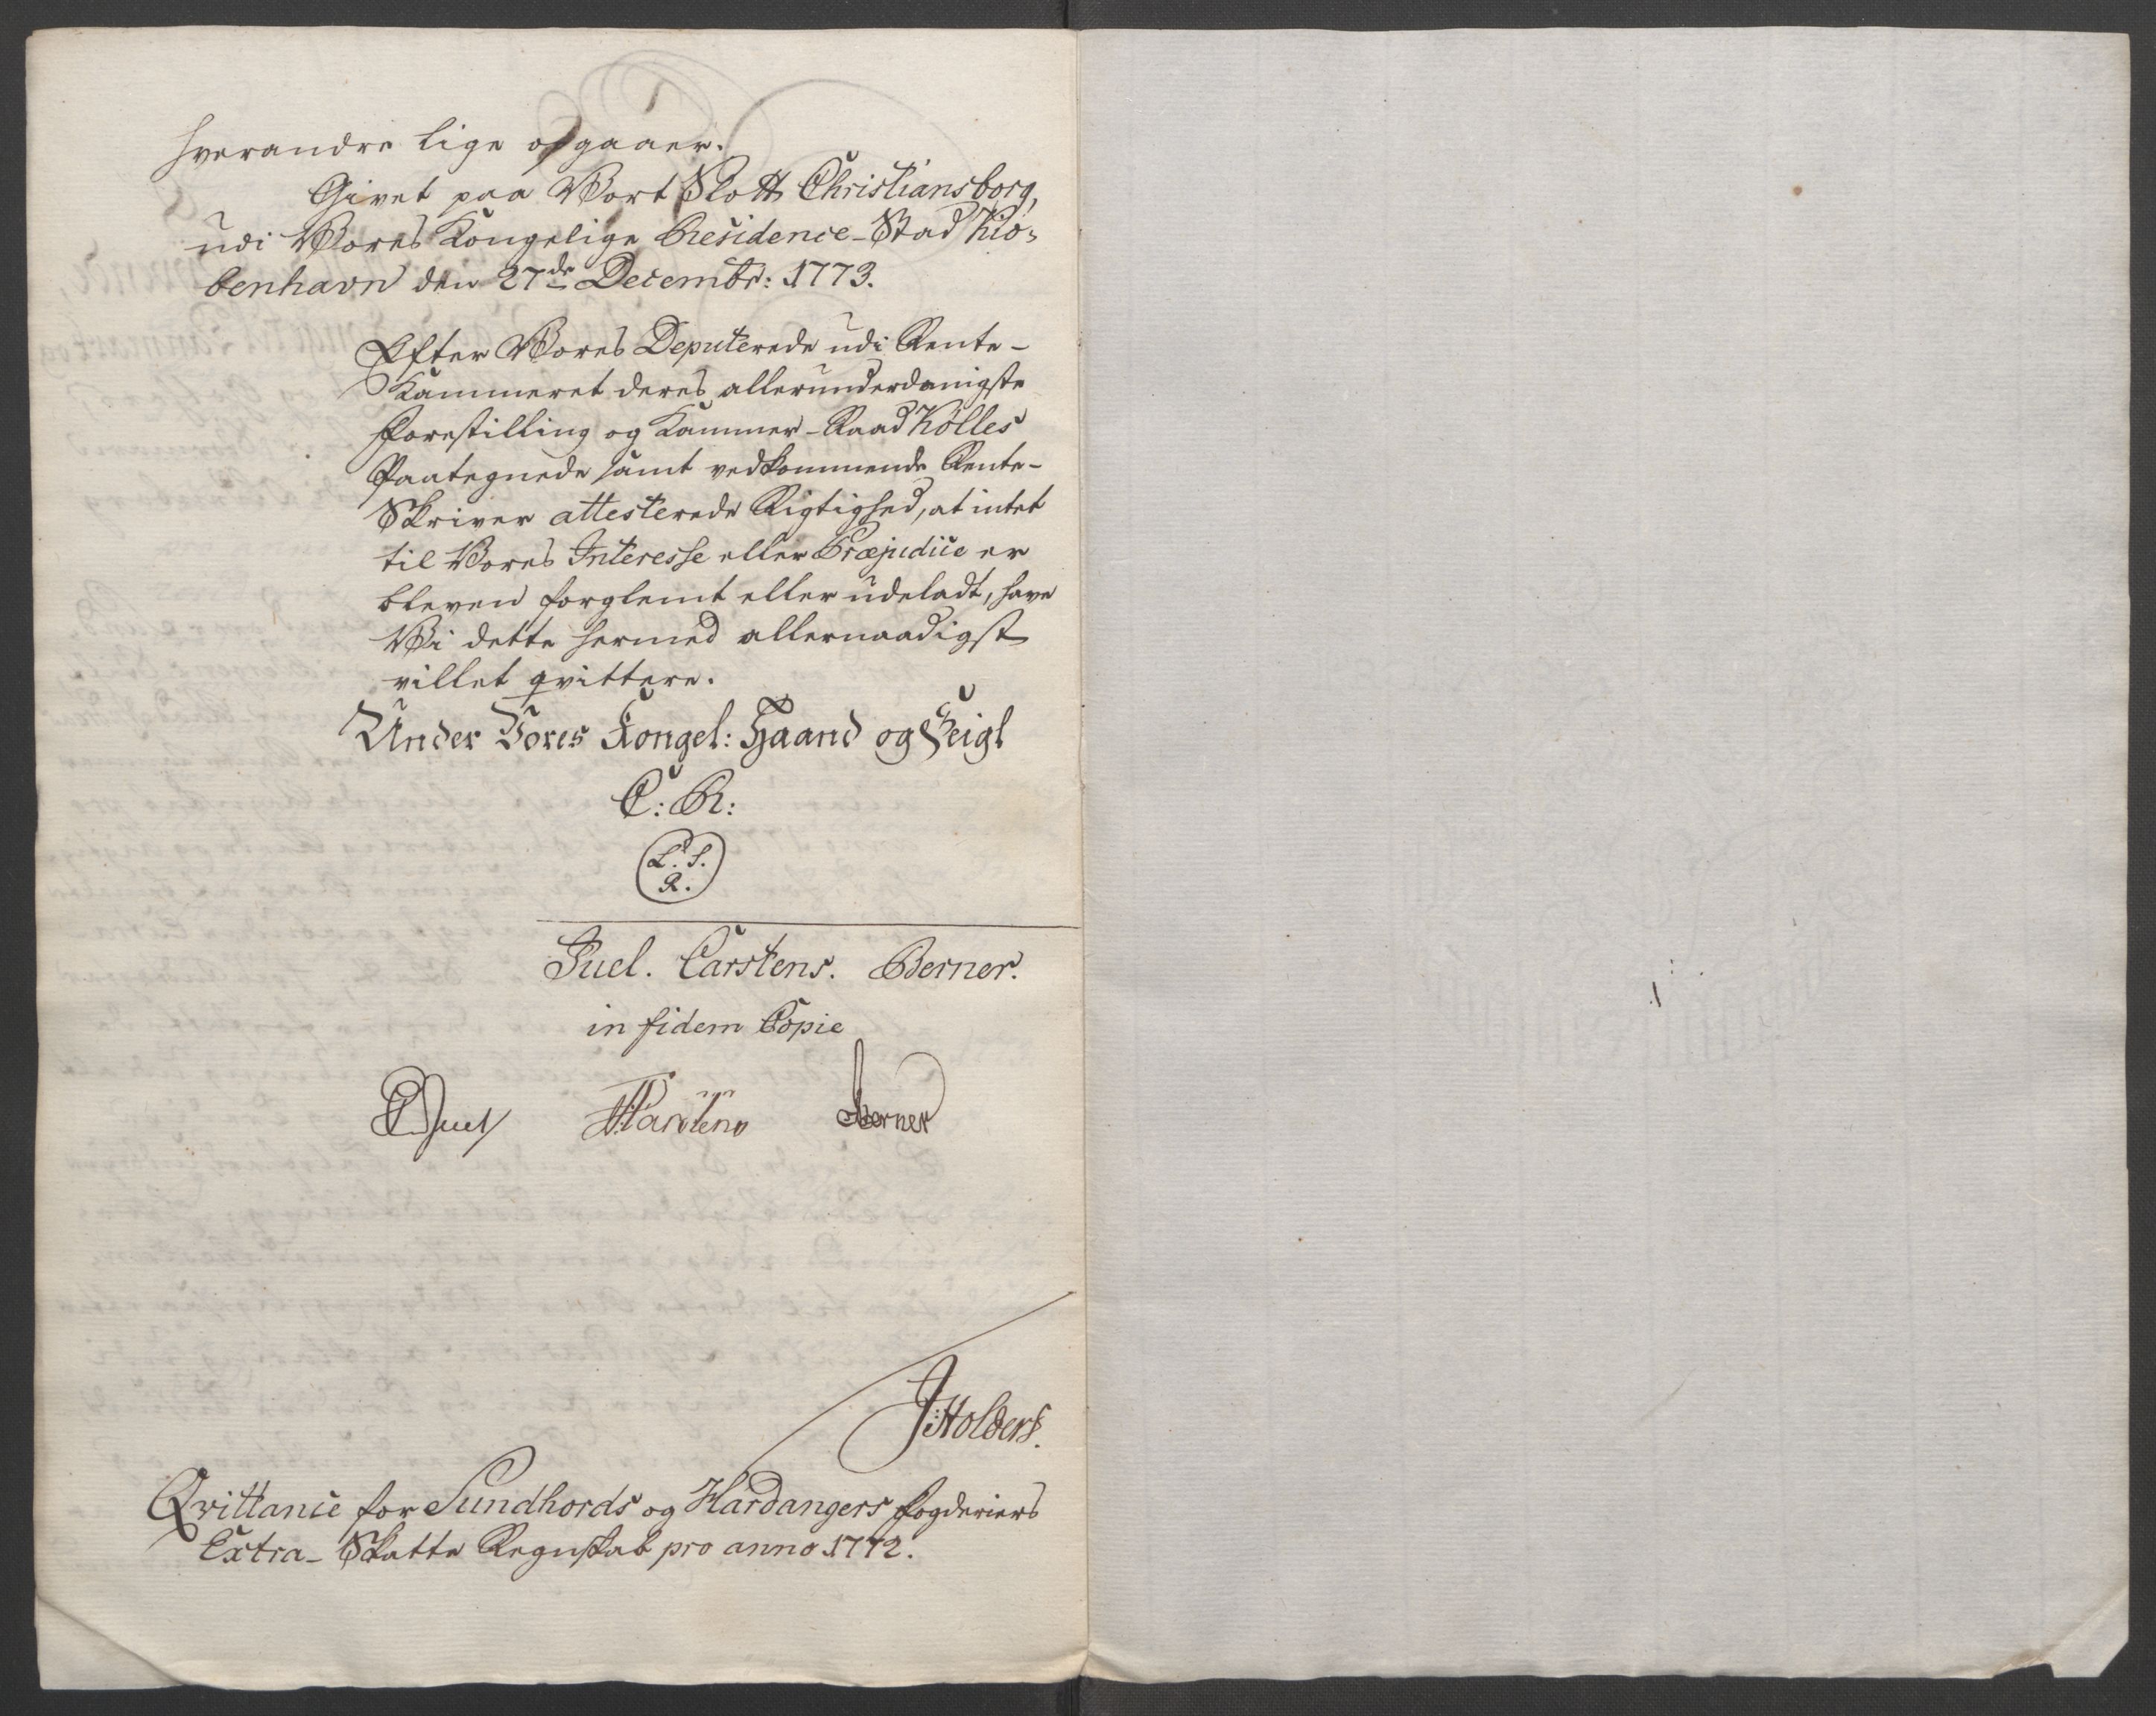 hverandre lige opgaaer.
Givet paa Vort Slott Christiansborg,
udi Vores Kongelige Residence-Stad Kiø-
benhavn den 27de Decembr: 1773.
Efter Vores Deputerede udi Rente-
Kammeret deres allerunderdanigste
Forestilling og Kammer-Raad Kölles
Paategnede samt vedkommende Rente-
Skriver attesterede Rigtighed, at intet
til Vores Interesse eller Præjudice er
bleven forglemt eller udeladt, have
Vi dette hermed allernaadigst
villet qvittere.
Under Vores Kongel: Haand og Seigl
C: R:
L. S.
R.
Juel. Carstens. Berner.
in fidem Copie
Juel Carstens Berner
J Holders.
Qvittance for Sundhords og Hardangers Fogderiers
Extra-Skatte Regnskab pro anno 1772.